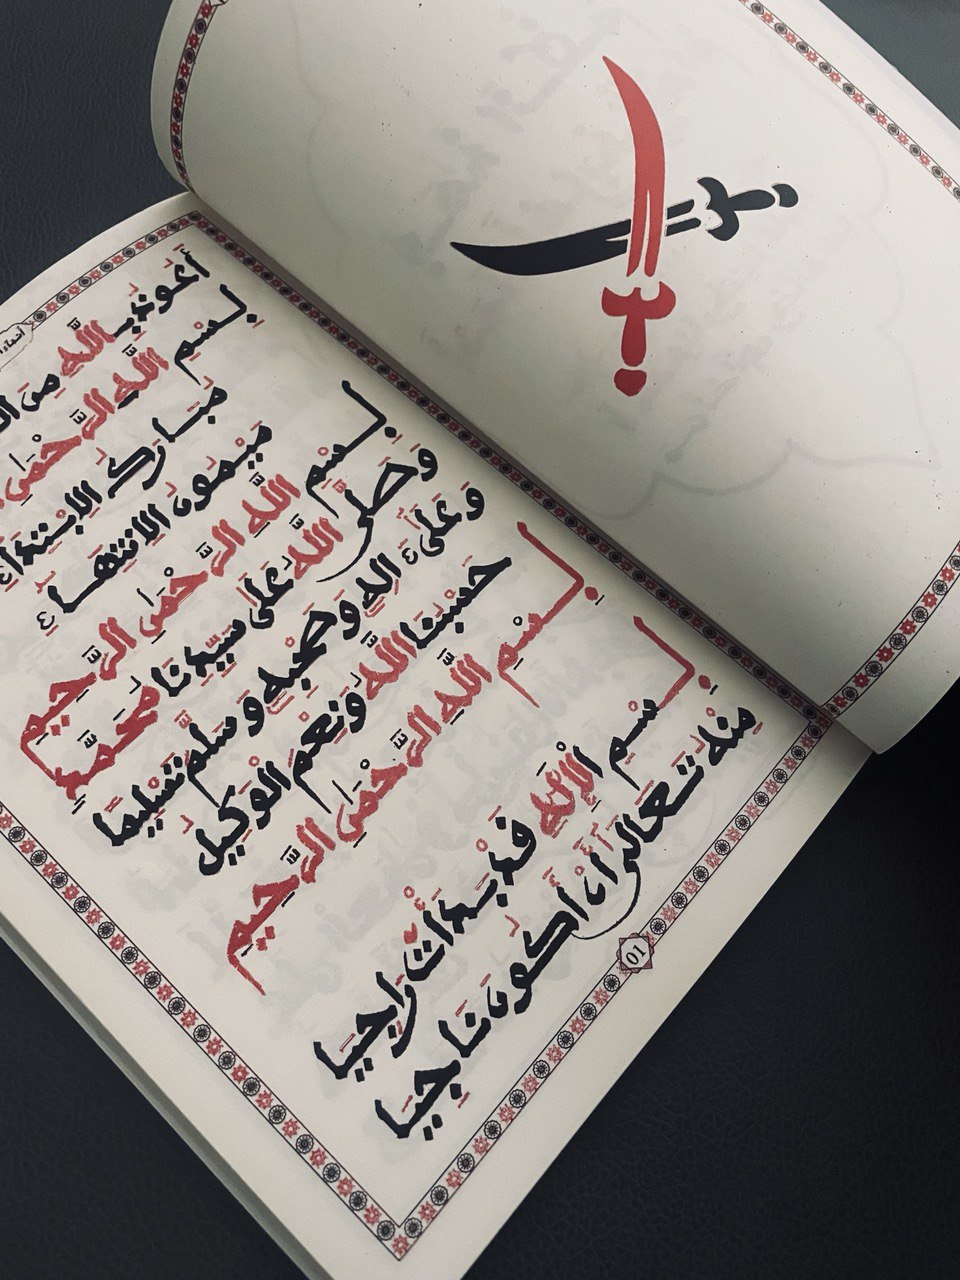 أعوذ بالله من
بسم الله الرحمن
مبارك الابتداء
ميمون الانتهاء
بسم الله الرحمن الرحيم
وصلى الله على سيدنا محمد
وعلى ءاله وصحبه وسلم تسليما
حسبنا الله ونعم الوكيل
بسم الله الرحمن الرحيم
بسم الإله قد بدأت راجيا
منه تعالى أن أكون ناجيا
01